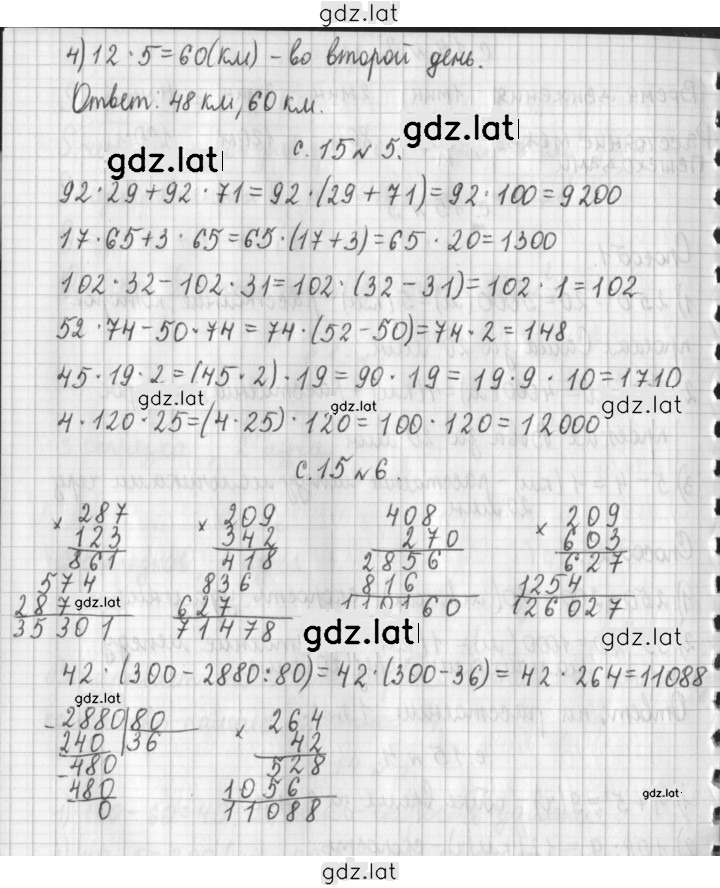 gdz.lat
4) 12 · 5 = 60 (км) - во второй день.
Ответ: 48 км, 60 км.
gdz.lat
gdz.lat
с. 15 № 5.
92 · 29 + 92 · 71 = 92 · (29 + 71) = 92 · 100 = 9200
17 · 65 + 3 · 65 = 65 · (17 + 3) = 65 · 20 = 1300
102 · 32 - 102 · 31 = 102 · (32 - 31) = 102 · 1 = 102
52 · 74 - 50 · 74 = 74 · (52 - 50) = 74 · 2 = 148
45 · 19 · 2 = (45 · 2) · 19 = 90 · 19 = 19 · 9 · 10 = 1710
gdz.lat gdz.lat gdz.lat
4 · 120 · 25 = (4 · 25) · 120 = 100 · 120 = 12000
с. 15 № 6
× 287 × 209 408 × 209
123 342 270 603
861 418 2856 627
574 836 816 1254
287 627 110160 126027
35301 71478
gdz.lat gdz.lat gdz.lat
42 · (300 - 2880 : 80) = 42 · (300 - 36) = 42 · 264 = 11088
gdz.lat
- 2880 | 80 × 264
240 | 36 42
- 480 528
480 1056
0 11088
gdz.lat
gdz.lat